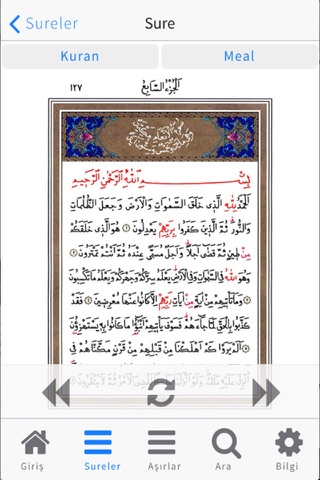 Sureler
Sure
Kuran
Meal
اَلْجُزْءُ السَّابِعُ
١٢٧
بِسْمِ اللّٰهِ الرَّحْمٰنِ الرَّحِيمِ
اَلْحَمْدُ لِلّٰهِ الَّذِي خَلَقَ السَّمٰوَاتِ وَالْاَرْضَ وَجَعَلَ الظُّلُمَاتِ
وَالنُّورَ ثُمَّ الَّذِينَ كَفَرُوا بِرَبِّهِمْ يَعْدِلُونَ هُوَ الَّذِي خَلَقَكُمْ
مِنْ طِينٍ ثُمَّ قَضٰى اَجَلًا وَاَجَلٌ مُسَمًّى عِنْدَهُ ثُمَّ اَنْتُمْ تَمْتَرُونَ
وَهُوَ اللّٰهُ فِي السَّمٰوَاتِ وَفِي الْاَرْضِ يَعْلَمُ سِرَّكُمْ وَجَهْرَكُمْ وَيَعْلَمُ مَا تَكْسِبُونَ
وَمَا تَأْتِيهِمْ مِنْ اٰيَةٍ مِنْ اٰيَاتِ رَبِّهِمْ اِلَّا كَانُوا عَنْهَا مُعْرِضِينَ فَقَدْ
كَذَّبُوا بِالْحَقِّ لَمَّا جَاءَهُمْ فَسَوْفَ يَأْتِيهِمْ اَنْبٰٓؤُ۬ا مَا كَانُوا بِهِ يَسْتَهْزِؤُنَ
اَلَمْ يَرَوْا كَمْ اَهْلَكْنَا مِنْ قَبْلِهِمْ مِنْ قَرْنٍ مَكَّنَّاهُمْ فِي
اُنْزِلَ عَلَيْهِ مَلَكٌ وَلَوْ اَنْزَلْنَا مَلَكًا لَقُضِيَ الْاَمْرُ ثُمَّ لَا يُنْظَرُونَ
Giriş
Sureler
Aşırlar
Ara
Bilgi